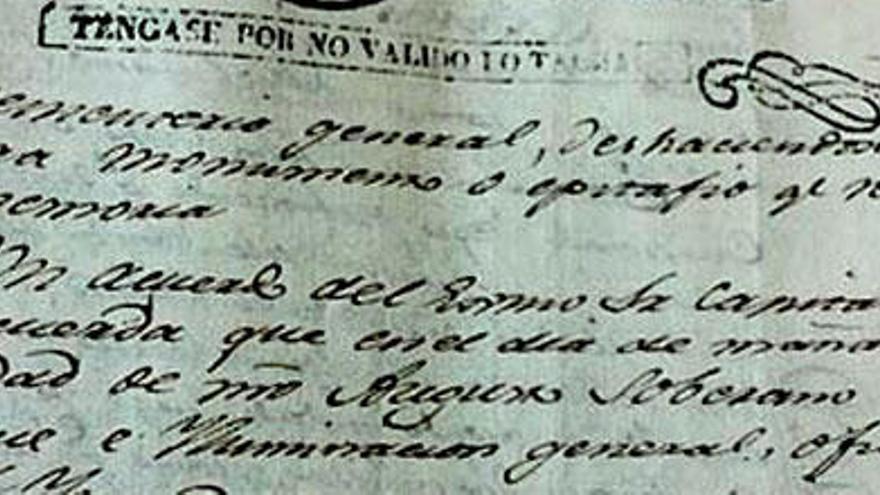 TENGASE POR NO VALIDO LO
general, deshaciendose
monumento o epitafio q.e
memoria
Un acuerdo del Exmo Sr Capita
que en el dia de maña
dad de nro Augusto Soberano
e Iluminacion general,